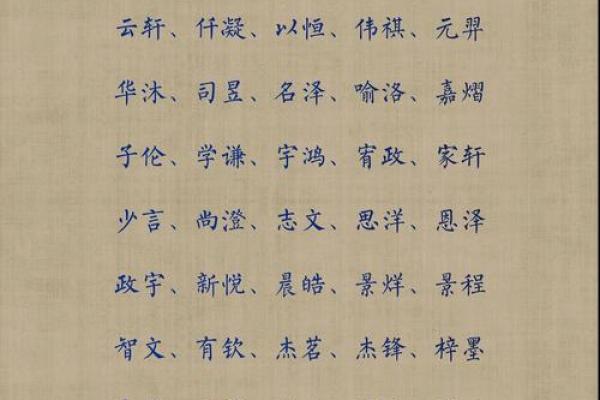 云轩、仟凝、以恒、伟祺、元羿
华沐、司昱、名泽、喻洛、嘉熠
子伦、学谦、宇鸿、宥政、家轩
少言、尚澄、志文、思洋、恩泽
政宇、新悦、晨皓、景烊、景程
智文、有钦、杰茗、杰锋、梓墨